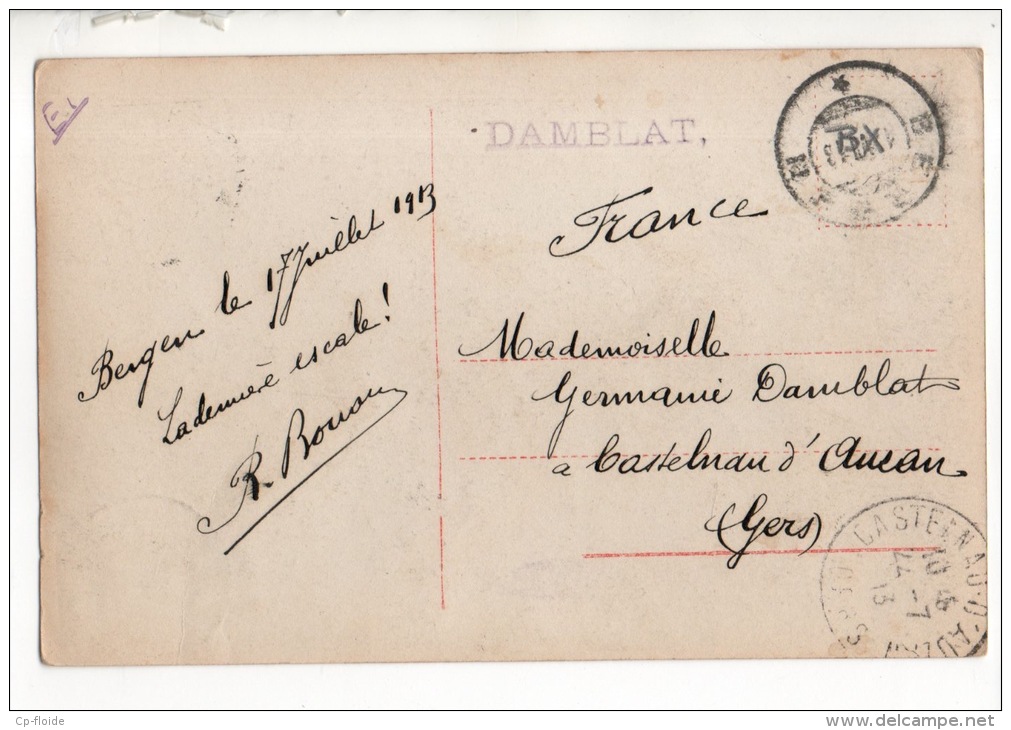 DAMBLAT,
France
Bergen le 17 Juillet 1913
La dernière escale!
Mademoiselle
Germanie Damblat
a Castelnau d'Auzan
(Gers)
CASTELNAU-D'AUZAN
10 45
22 -7
13
Cp-floide
www.delcampe.net